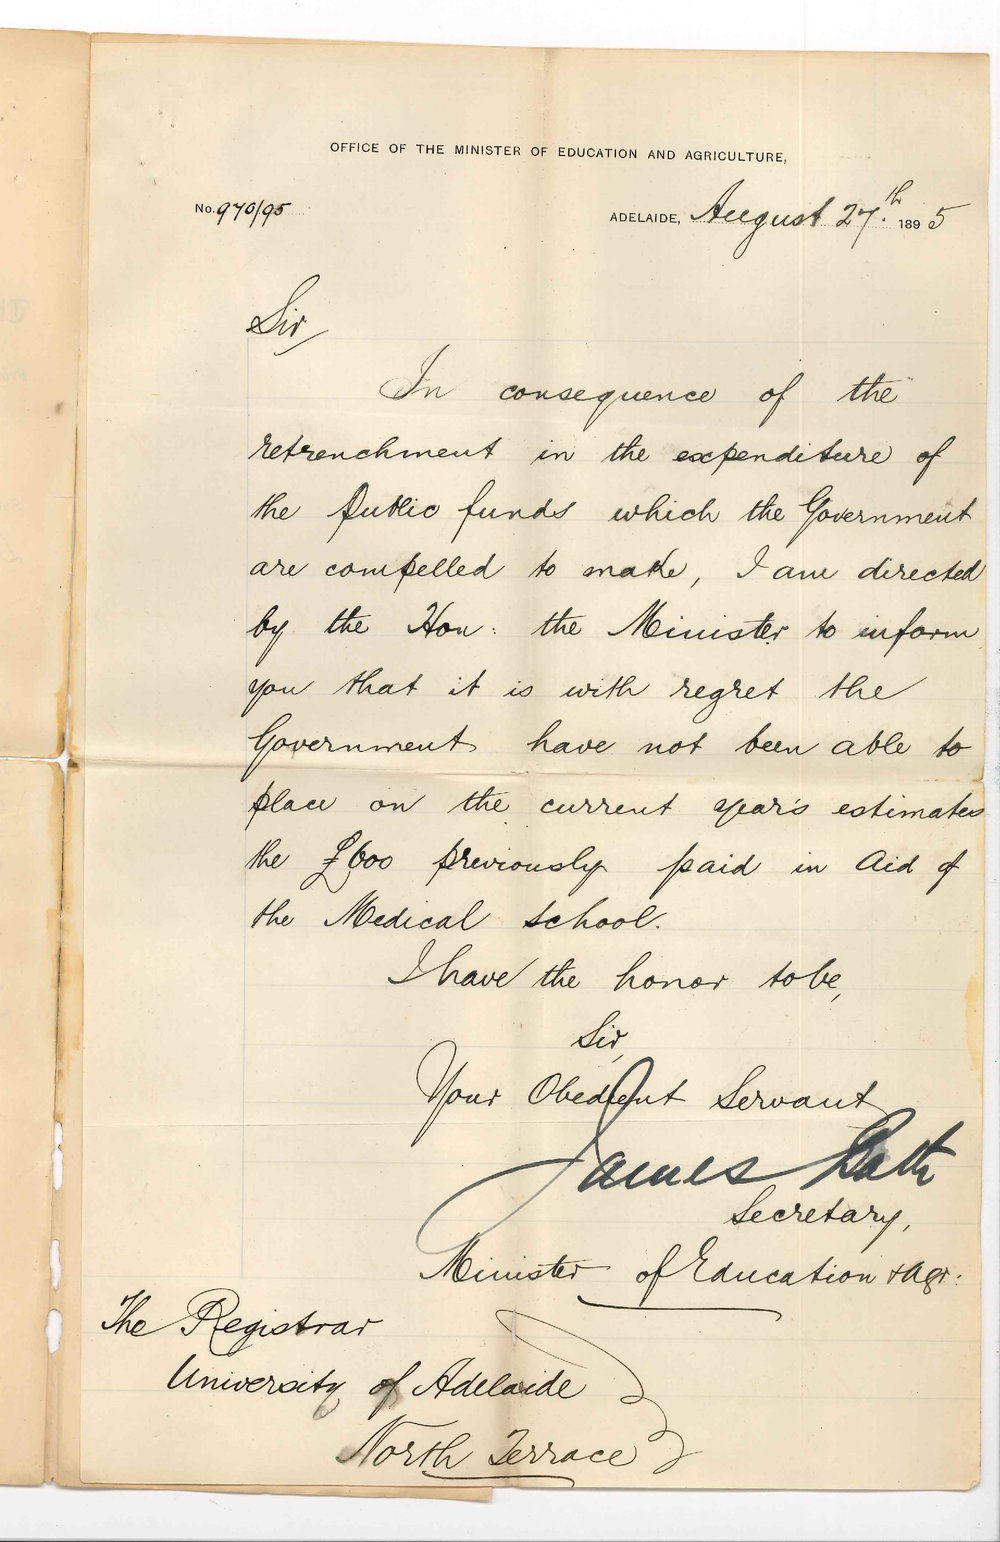 OFFICE OF THE MINISTER OF EDUCATION AND AGRICULTURE,
No. 970/95
ADELAIDE, August 27th. 1895
Sir,
In consequence of the
retrenchment in the expenditure of
the public funds which the Government
are compelled to make, I am directed
by the Hon: the Minister to inform
you that it is with regret the
Government have not been able to
place on the current year's estimates
the £600 previously paid in aid of
the Medical School.
I have the honor to be,
Sir,
Your Obedient Servant
James
Secretary,
Minister of Education & Agr:
The Registrar
University of Adelaide
North Terrace